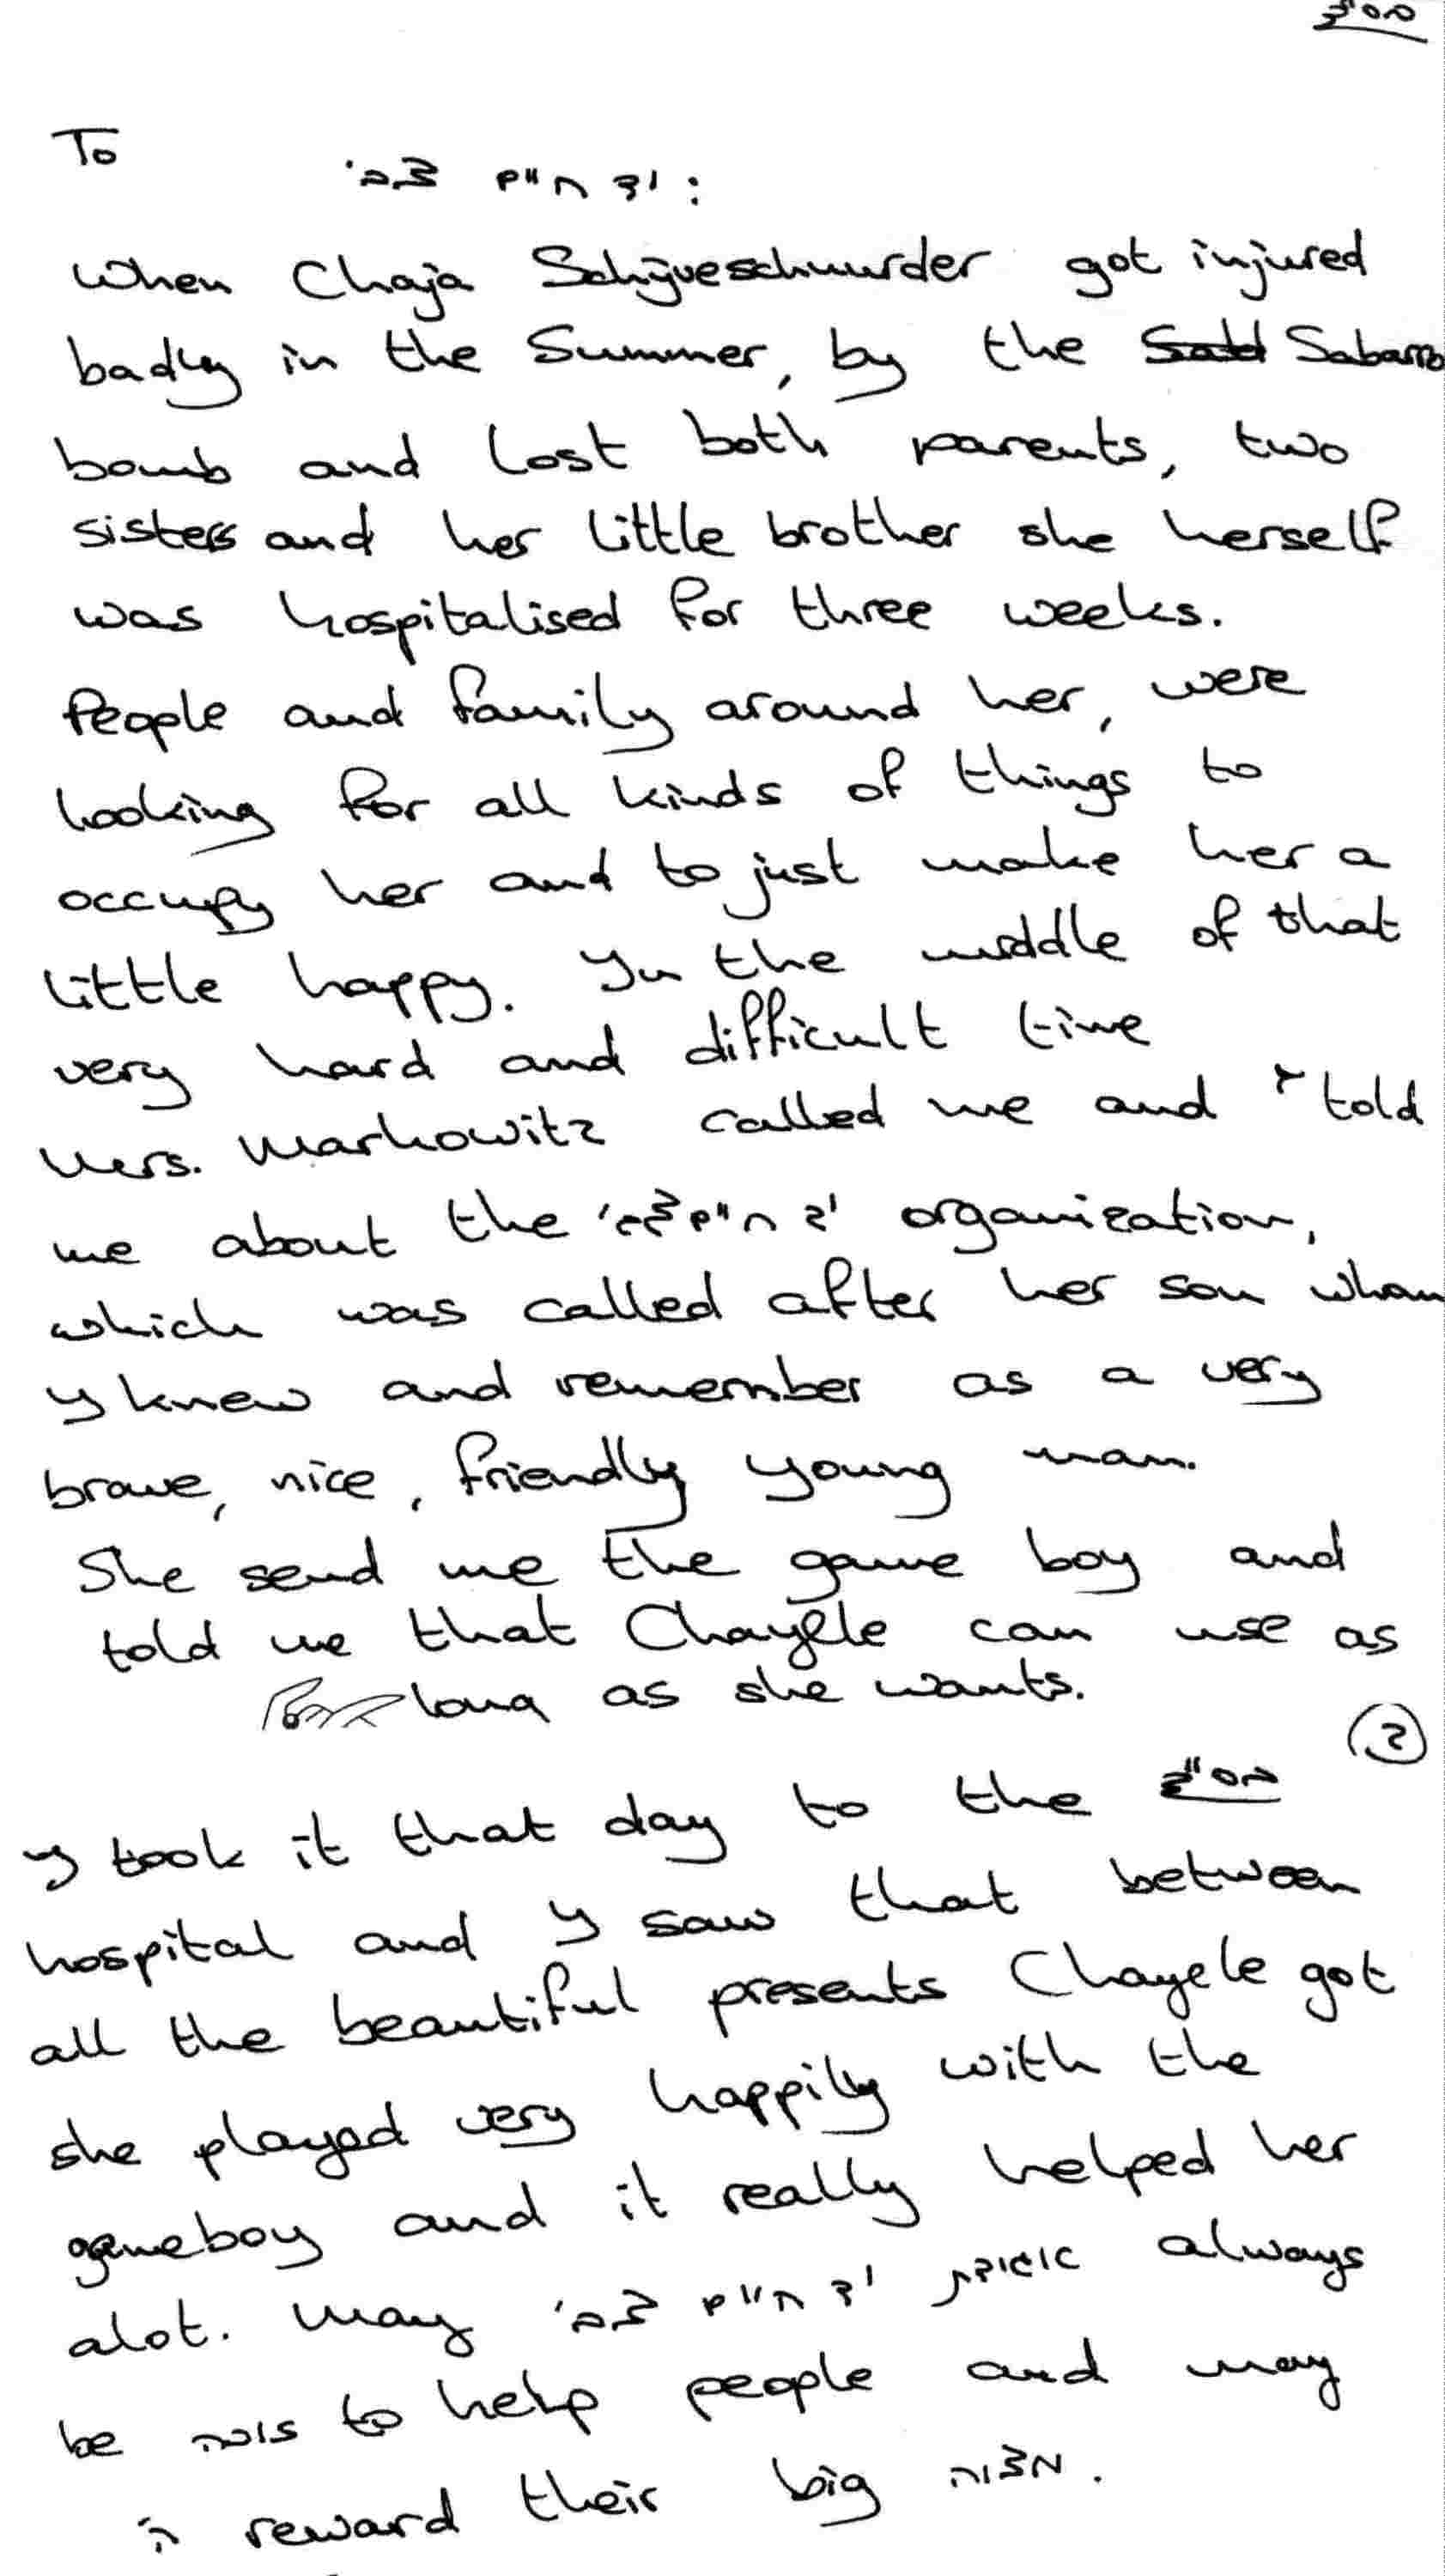 בס"ד
To
יד חיים צבי:
When Chaja Schijveschuurder got injured
badly in the Summer, by the Sabarro
bomb and lost both parents, two
sisters and her little brother she herself
was hospitalised for three weeks.
People and family around her, were
looking for all kinds of things to
occupy her and to just make her a
little happy. In the middle of that
very hard and difficult time
Mrs. Markowitz called me and told
me about the יד חיים צבי organization,
which was called after her son whom
I knew and remember as a very
brave, nice, friendly young man.
She send me the game boy and
told me that Chayele can use as
long as she wants.
2
בס"ד
I took it that day to the
hospital and I saw that between
all the beautiful presents Chayele got
she played very happily with the
gameboy and it really helped her
alot. May אגודת יד חיים צבי always
be זוכה to help people and may
ה' reward their big מצוה.